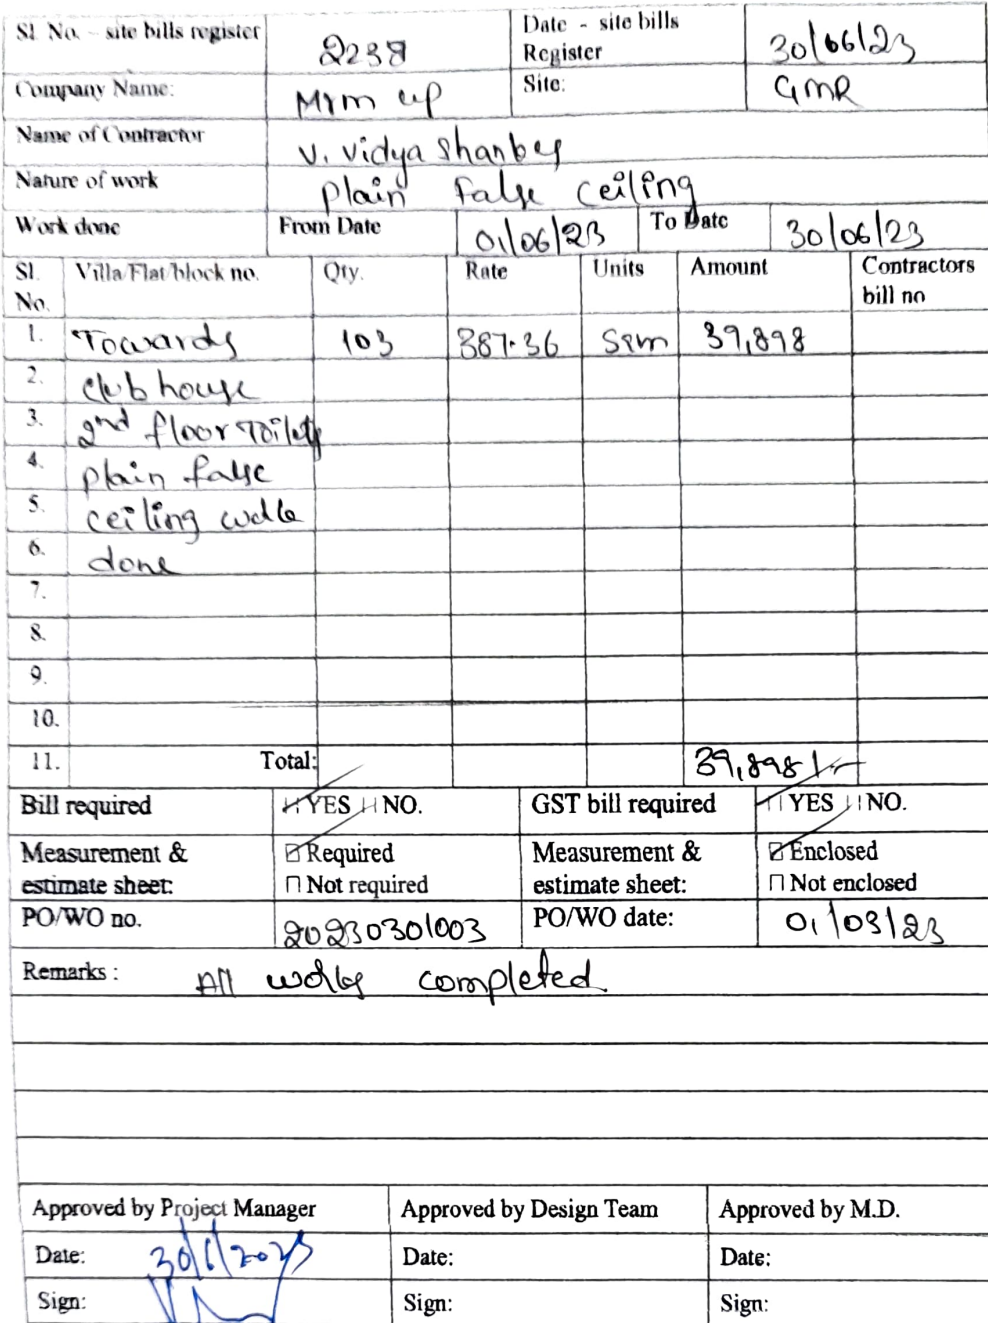 Sl. No. - site bills register 2238 Date - site bills Register 30/06/23
Company Name: Mrm Site: GMR
Name of Contractor V. Vidya
Nature of work Plain False ceiling
Work done From Date 01/06/23 To Date 30/06/23
Sl. No. Villa/Flat/block no. Qty. Rate Units Amount Contractors bill no
1. Towards 103 387.36 Sqm 39,898
2. club house
3. 2nd floor Toilets
4. plain false
5. ceiling
6. done
7.
8.
9.
10.
11. Total: 39,898/-
Bill required YES NO. GST bill required YES NO.
Measurement & estimate sheet: ☑ Required Measurement & estimate sheet: ☑ Enclosed
☐ Not required ☐ Not enclosed
PO/WO no. 20230301003 PO/WO date: 01/03/23
Remarks : All works completed
Approved by Project Manager Approved by Design Team Approved by M.D.
Date: 30/6/2023 Date: Date:
Sign: Sign: Sign: